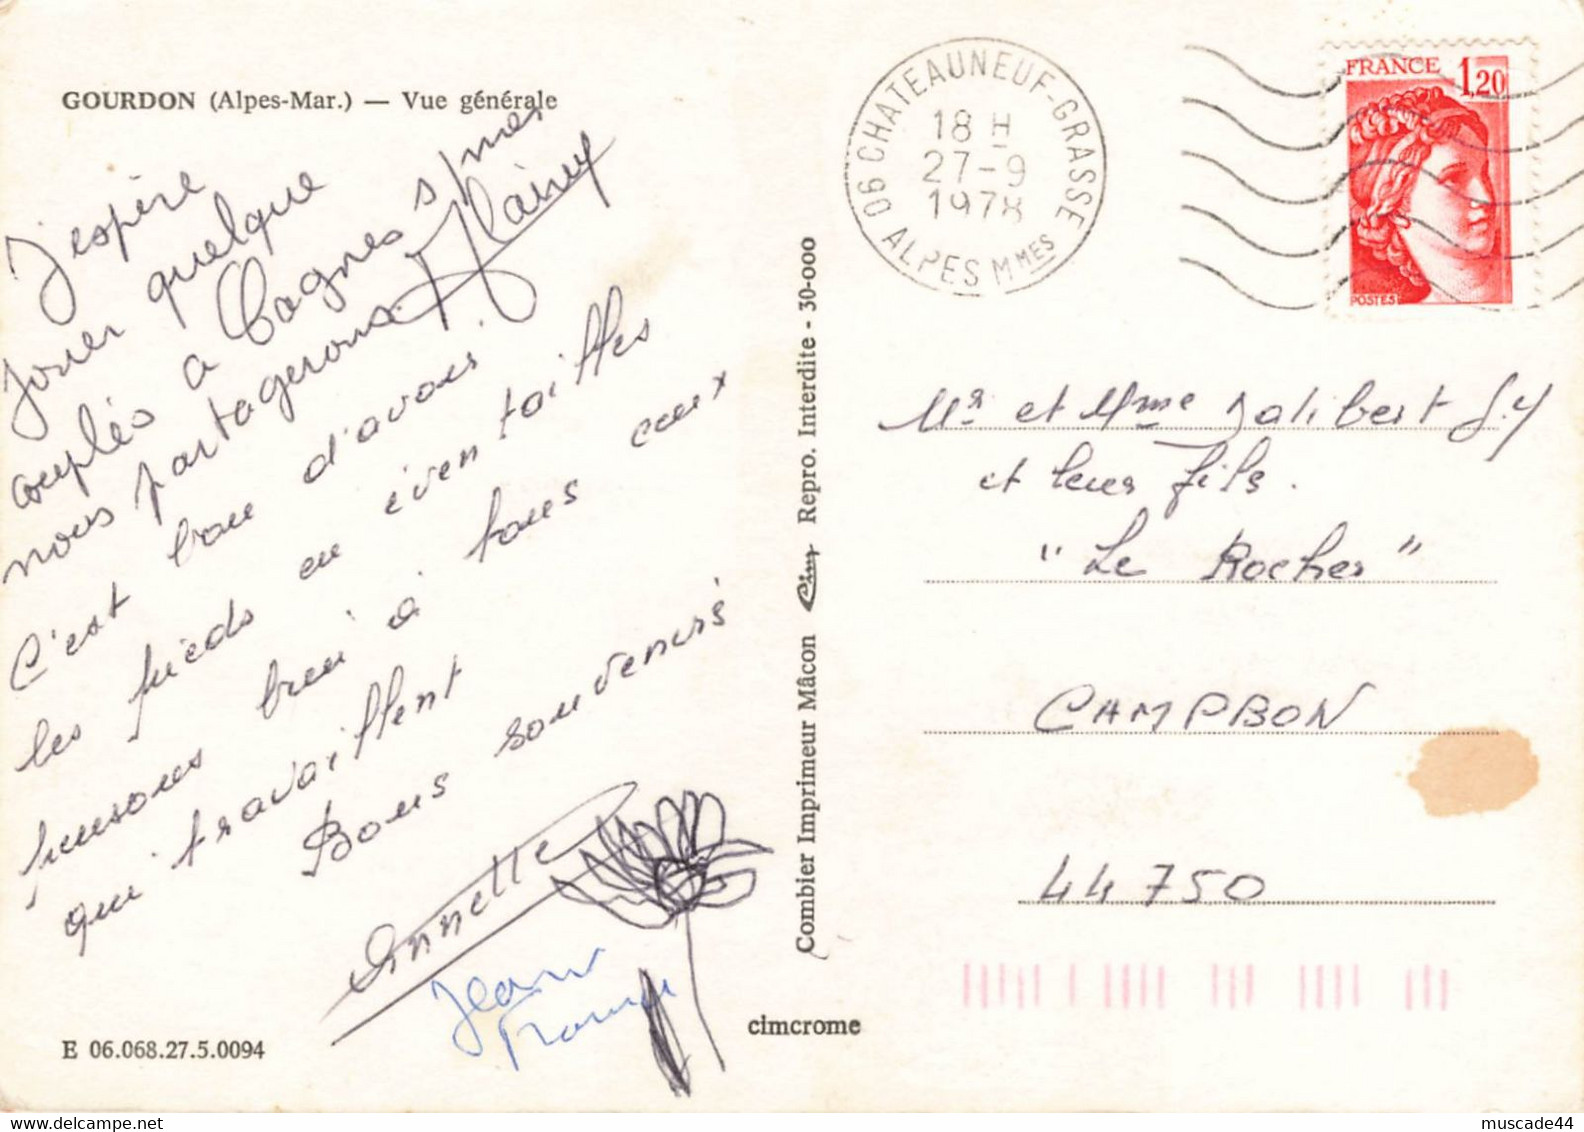 GOURDON (Alpes-Mar.) — Vue générale
J'espère
jouer quelque
couplés à Cagnes s/mer
nous partagerons.
C'est bon d'avoir
les pieds en éventailles
pensons bien à tous ceux
qui travaillent
Bons souvenirs
Annette
Jean
E 06.068.27.5.0094
cimcrome
Combier Imprimeur Mâcon Cim Repro. Interdite - 30-000
06 CHATEAUNEUF-GRASSE
18 H
27-9
1978
ALPES MMES
FRANCE 1,20
POSTES
Mr et Mme Jalibert G.Y
et leurs fils.
"Le Rocher"
CAMPBON
44750
muscade44